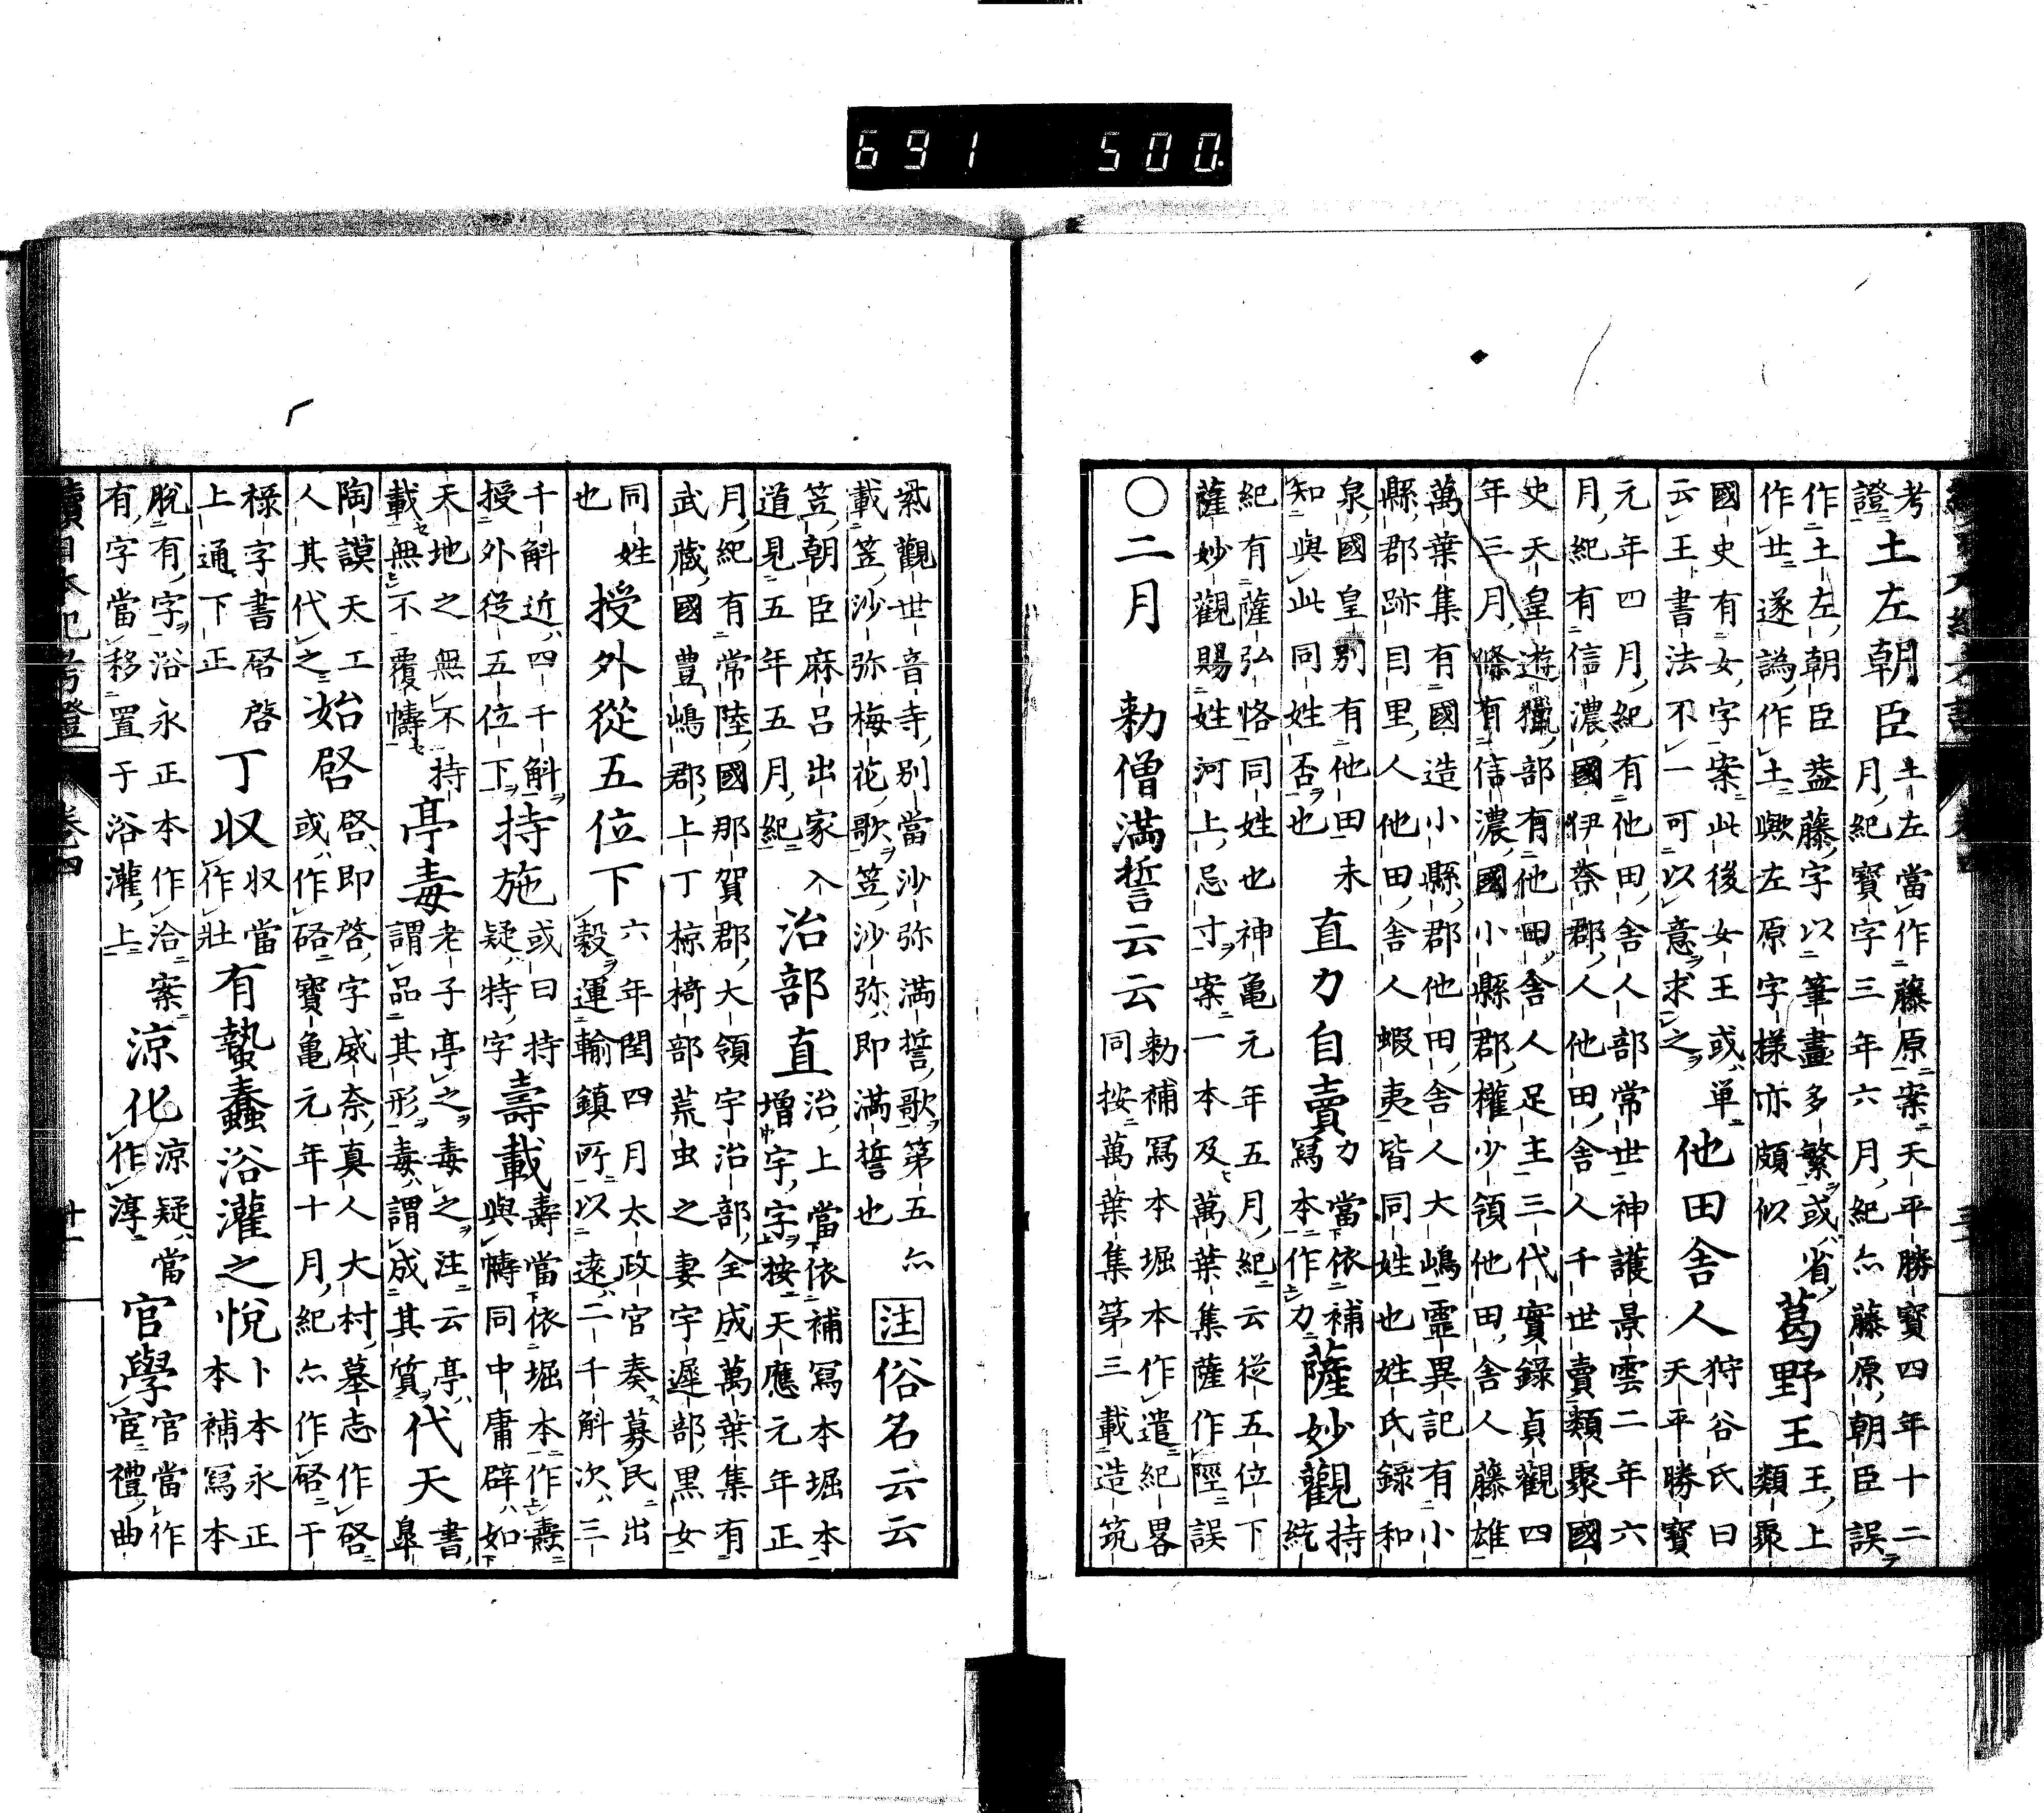 考證
土左朝臣
土左當作藤原案天平勝寶四年十二
月紀寶字三年六月紀亦藤原朝臣誤
作土左朝臣蓋藤字以筆畫多繁或省
作𠀍遂譌作土歟左原字樣亦頗似
葛野王
王上
類聚
國史有女字案此後女王或單
云王書法不一可以意求之
他田舍人
狩谷氏曰
天平勝寶
元年四月紀有他田舍人部常世神護景雲二年六
月紀有信濃國伊奈郡人他田舍人千世賣類聚國
史天皇遊獵部有他田舍人足主三代實錄貞觀四
年三月條有信濃國小縣郡權少領他田舍人藤雄
萬葉集有國造小縣郡他田舍人大嶋靈異記有小
縣郡跡目里人他田舍人蝦夷皆同姓也姓氏錄和
泉國皇別有他田未
知與此同姓否也
直力自賣
力當依補
寫本作刀
薩妙觀
持
統
紀有薩弘恪同姓也神亀元年五月紀云從五位下
薩妙觀賜姓河上忌寸案一本及萬葉集薩作陘誤
○二月　勅僧滿誓云云
勅補寫本堀本作遣紀畧
同按萬葉集第三載造筑
紫觀世音寺別當沙弥滿誓歌第五亦
載笠沙弥梅花歌笠沙弥即滿誓也
注俗名云云
笠朝臣麻呂出家入
道見五年五月紀
治部直
治上當依補寫本堀本
增宇字按天應元年正
月紀有常陸國那賀郡大領宇治部全成萬葉集有
武藏國豊嶋郡上丁椋椅部荒虫之妻宇遲部黒女
同姓
也
授外從五位下
六年閏四月太政官奏募民出
穀運輸鎮所以遠二千斛次三
千斛近四千斛
授外從五位下
持施
或曰持
疑特字
壽載
壽當依堀本作燾
與幬同中庸辟如
天地之無不持
載無不覆幬
亭毒
老子亭之毒之注云亭
謂品其形毒謂成其質
代天
書
臯
陶謨天工
人其代之
始啓
啓即啓字威奈真人大村墓志作啓
或作硌寶亀元年十月紀亦作硌干
祿字書啓啓
上通下正
丁収
収當
作壯
有蟄蠢浴灌之悅
卜本永正
本補寫本
脫有字浴永正本作洽案
有字當移置于浴灌上
涼化
涼疑當
作淳
官學
官當作
宦禮曲
續日本紀考證
卷四
十一